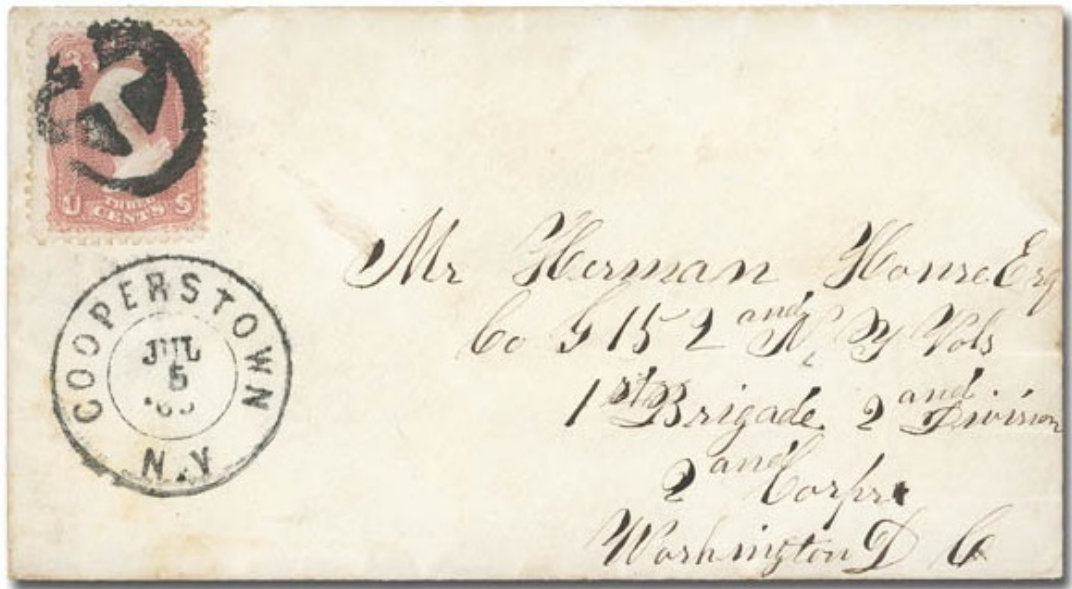 U THREE CENTS S
COOPERSTOWN
JUL
5
N.Y
Mr Herman House Esq
Co G 152 and N, Y Vols
1st Brigade 2 and Division
2 and Corps
Washington D C